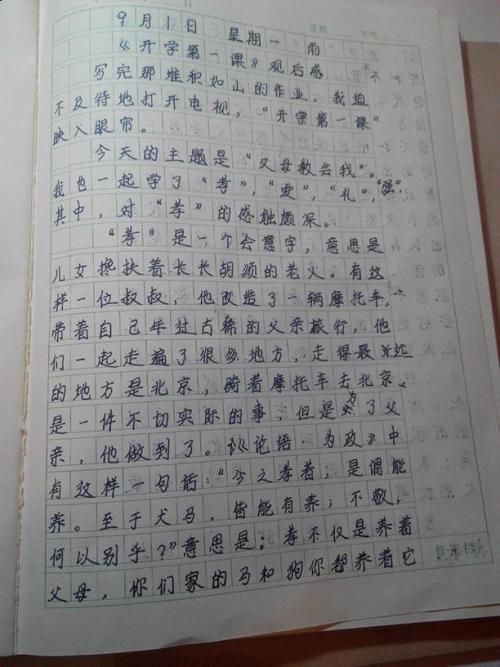 星期 天气
9月1日 星期一 雨
《开学第一课》观后感
写完那堆积如山的作业，我迫
不及待地打开电视，“开学第一课”
映入眼帘。
今天的主题是“父母教会我”。
我也一起学了“孝”，“爱”，“礼”，“强”，
其中，对“孝”的感触颇深。
“孝”是一个会意字，意思是
儿女搀扶着长长胡须的老人。有这
样一位叔叔，他改造了一辆摩托车，
带着自己年过古稀的父亲旅行，他
们一起走遍了很多地方，走得最远
的地方是北京，骑着摩托车去北京、
是一件不切实际的事，但是为了父
亲，他做到了。《论语·为政》中
有这样一句话：“今之孝者；是谓能
养。至于犬马，皆能有养；不敬，
何以别乎？”意思是：孝不仅是养着
父母，你们家的马和狗你都养着它